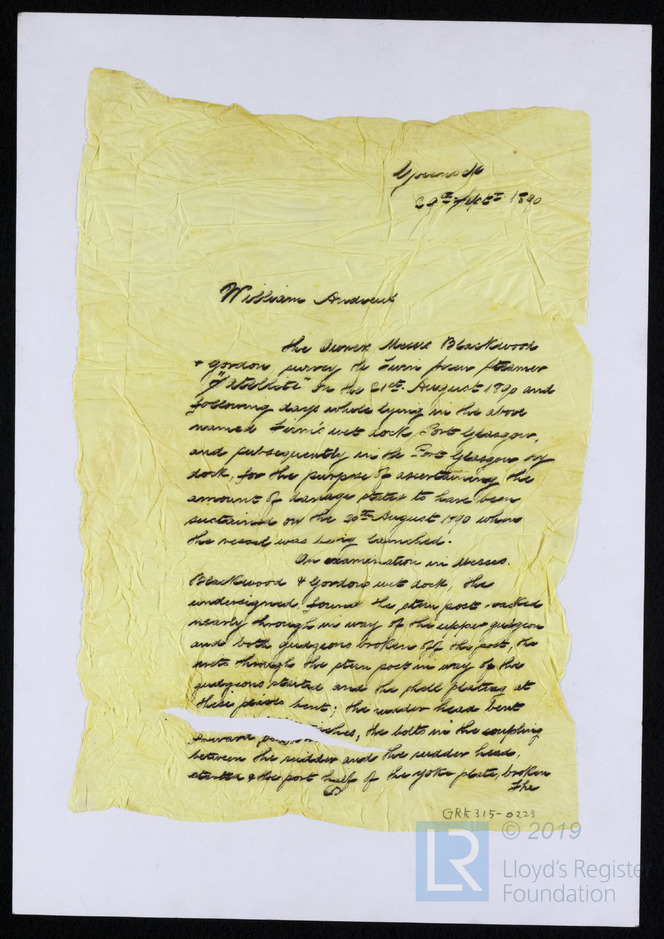 Greenock
29th Septr 1890
William Andrew
the Owners Messrs Blackwood
& Gordon survey the Twin Screw Steamer
"Satellite" on the 21st August 1890 and
following days whilst lying in the above
named Firm's wet dock, Port Glasgow,
and subsequently in the Port Glasgow dry
dock, for the purpose of ascertaining the
amount of damage stated to have been
sustained on the 20th August 1890 when
the vessel was being launched.
On examination in Messrs.
Blackwood & Gordons wet dock, the
undersigned found the stern post cracked
nearly through in way of the upper gudgeon
and both gudgeons broken off the post, the
rivets through the stern post in way of the
gudgeons started and the shell plating at
these places bent; the rudder head bent
inches, the bolts in the coupling
between the rudder and the rudder head
started & the port half of the yoke plate, broken
The
GRK 315-0223
© 2019
LR
Lloyd's Register
Foundation